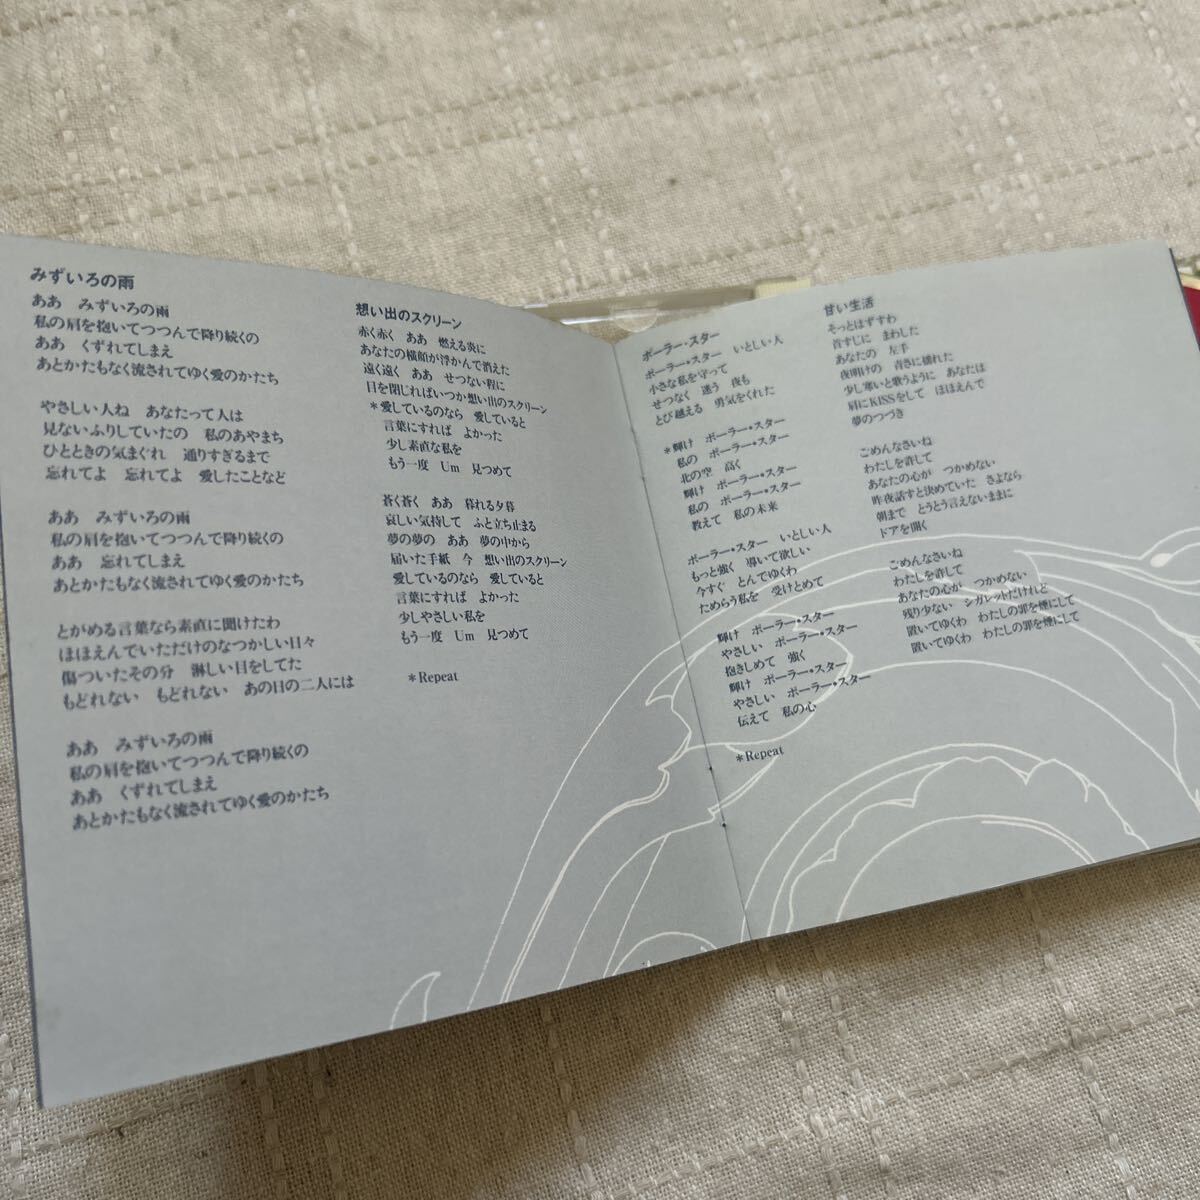 みずいろの雨
ああ　みずいろの雨
私の肩を抱いてつつんで降り続くの
ああ　くずれてしまえ
あとかたもなく流されてゆく愛のかたち
やさしい人ね　あなたって人は
見ないふりしていたの　私のあやまち
ひとときの気まぐれ　通りすぎるまで
忘れてよ　忘れてよ　愛したことなど
ああ　みずいろの雨
私の肩を抱いてつつんで降り続くの
ああ　忘れてしまえ
あとかたもなく流されてゆく愛のかたち
とがめる言葉なら素直に聞けたわ
ほほえんでいただけのなつかしい日々
傷ついたその分　淋しい目をしてた
もどれない　もどれない　あの日の二人には
ああ　みずいろの雨
私の肩を抱いてつつんで降り続くの
ああ　くずれてしまえ
あとかたもなく流されてゆく愛のかたち
想い出のスクリーン
赤く赤く　ああ　燃える炎に
あなたの横顔が浮かんで消えた
遠く遠く　ああ　せつない程に
目を閉じればいつか想い出のスクリーン
＊愛しているのなら　愛していると
言葉にすれば　よかった
少し素直な私を
もう一度　Um　見つめて
蒼く蒼く　ああ　暮れる夕暮
哀しい気持して　ふと立ち止まる
夢の夢の　ああ　夢の中から
届いた手紙　今　想い出のスクリーン
愛しているのなら　愛していると
言葉にすれば　よかった
少しやさしい私を
もう一度　Um　見つめて
＊Repeat
ポーラー・スター
ポーラー・スター　いとしい人
小さな私を守って
せつなく　迷う　夜も
とび越える　勇気をくれた
＊輝け　ポーラー・スター
私の　ポーラー・スター
北の空　高く
輝け　ポーラー・スター
私の　ポーラー・スター
教えて　私の未来
ポーラー・スター　いとしい人
もっと強く　導いて欲しい
今すぐ　とんでゆくわ
ためらう私を　受けとめて
輝け　ポーラー・スター
やさしい　ポーラー・スター
抱きしめて　強く
輝け　ポーラー・スター
やさしい　ポーラー・スター
伝えて　私の心
＊Repeat
甘い生活
そっとはずすわ
首すじに　まわした
あなたの　左手
夜明けの　青さに揺れた
少し寒いと歌うように　あなたは
肩にKISSをして　ほほえんで
夢のつづき
ごめんなさいね
わたしを許して
あなたの心が　つかめない
昨夜話すと決めていた　さよなら
朝まで　とうとう言えないままに
ドアを開く
ごめんなさいね
わたしを許して
あなたの心が　つかめない
残り少ない　シガレットだけれど
置いてゆくわ　わたしの罪を煙にして
置いてゆくわ　わたしの罪を煙にして